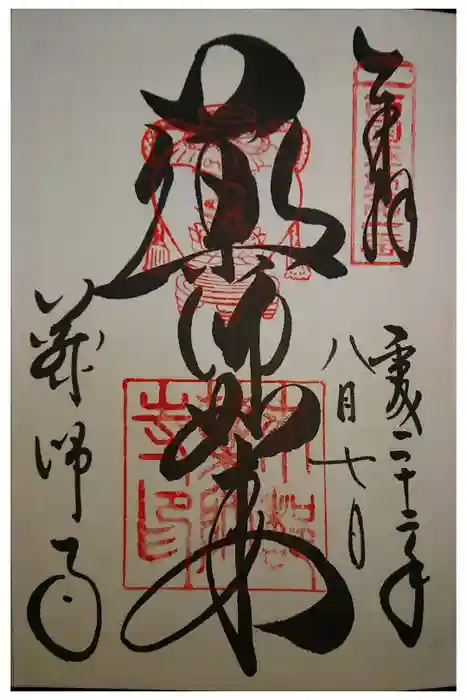 奉拝
平成二十二年
八月七日
薬師如来
薬師寺